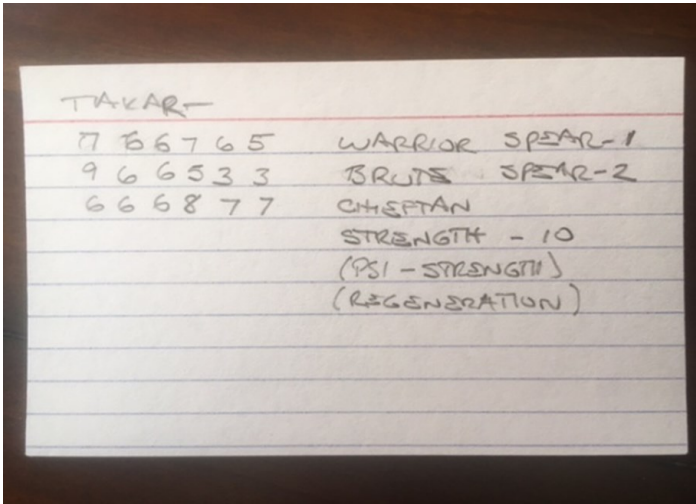 TAKAR-
7 6 6 7 6 5 WARRIOR SPEAR-1
9 6 6 5 3 3 BRUTE SPEAR-2
6 6 6 8 7 7 CHIEFTAN
STRENGTH - 10
(PSI - STRENGTH)
(REGENERATION)